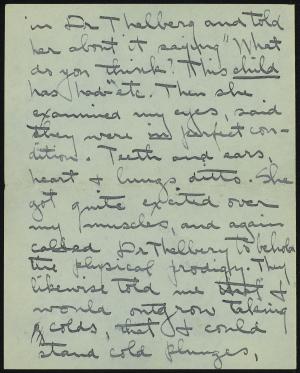 in Dr Thelberg and told
her about it saying "What
do you think? This child
has had" etc. Then she
examined my eyes, said
they were in perfect con-
dition. Teeth and ears,
heart & lungs ditto. She
got quite excited over
my muscles, and again
called Dr Thelberg to behold
the physical prodigy. They
likewise told me that I
would outgrow taking
colds, that I could
stand cold plunges,